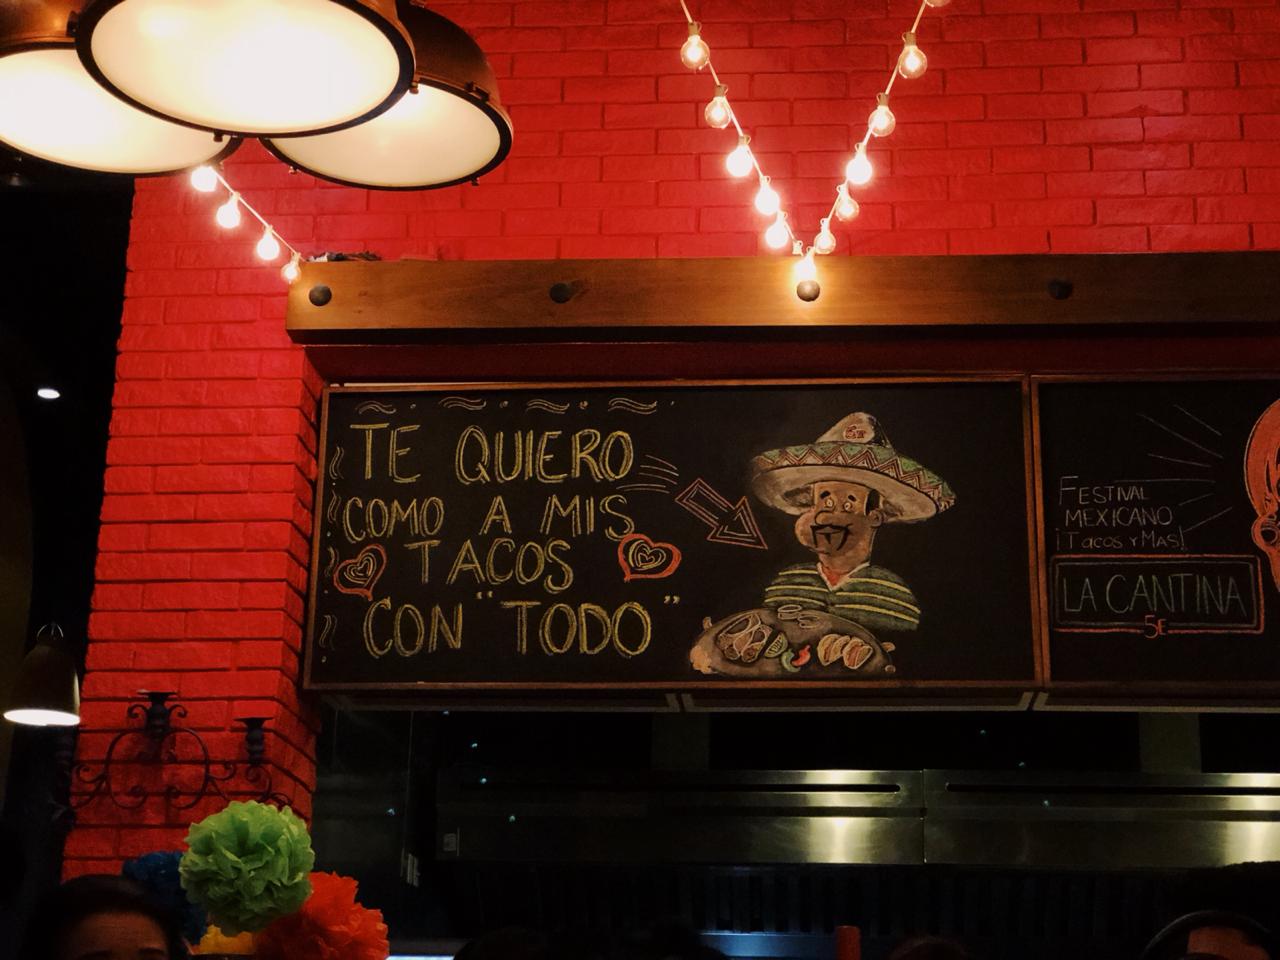 TE QUIERO
COMO A MIS
TACOS
CON "TODO"
FESTIVAL
MEXICANO
¡TACOS Y MAS!
LA CANTINA
5E